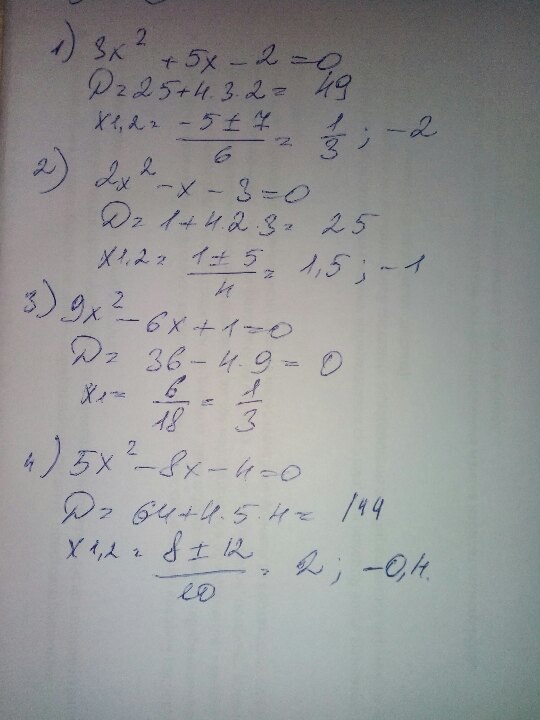 1) 3x² + 5x - 2 = 0
D = 25 + 4·3·2 = 49
x1,2 = (-5 ± 7)/6 = 1/3; -2
2) 2x² - x - 3 = 0
D = 1 + 4·2·3 = 25
x1,2 = (1 ± 5)/4 = 1,5; -1
3) 9x² - 6x + 1 = 0
D = 36 - 4·9 = 0
x1 = 6/18 = 1/3
4) 5x² - 8x - 4 = 0
D = 64 + 4·5·4 = 144
x1,2 = (8 ± 12)/10 = 2; -0,4.